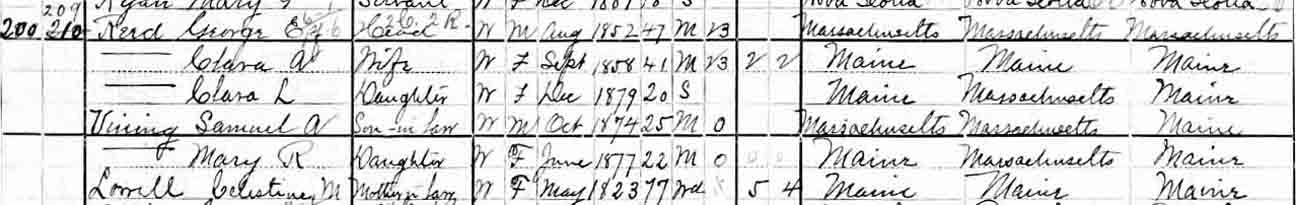 Ryan Mary Servant W F Dec 1881 18 S Nova Scotia Nova Scotia Nova Scotia
209
200 210 Reed George E Head W M Aug 1852 47 M 23 Massachusetts Massachusetts Massachusetts
—— Clara A Wife W F Sept 1858 41 M 23 2 2 Maine Maine Maine
—— Clara L Daughter W F Dec 1879 20 S Maine Massachusetts Maine
Vining Samuel A Son-in-law W M Oct 1874 25 M 0 Massachusetts Massachusetts Maine
—— Mary R Daughter W F June 1877 22 M 0 0 0 Maine Massachusetts Maine
Lowell Celestine M Mother in law W F May 1823 77 Wd 5 4 Maine Maine Maine